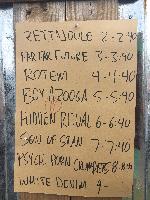 ZETTAJOULE 2-2:40
FAR FAR FUTURE 3-3:40
ROTEM 4-4:40
BOY AZOOGA 5-5:40
HIDDEN RITUAL 6-6:40
SON OF STAN 7-7:40
PSYCH. PORN CRUMPETS 8-8:40
WHITE DENIM 9-